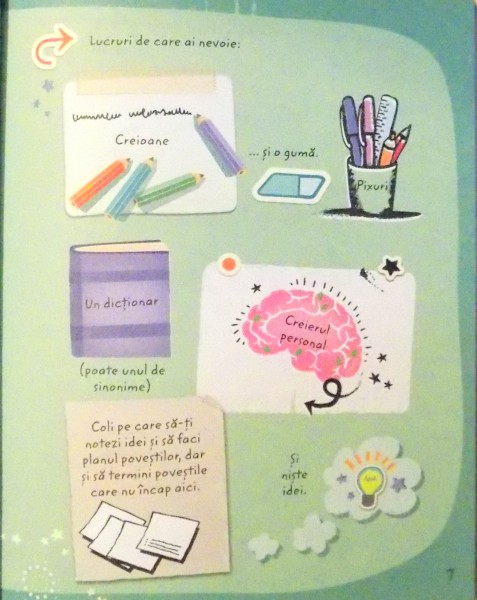 Lucruri de care ai nevoie:
Creioane
... și o gumă.
Pixuri
Un dicționar
(poate unul de
sinonime)
Creierul
personal
Coli pe care să-ți
notezi idei și să faci
planul poveștilor, dar
și să termini poveștile
care nu încap aici.
Și
niște
idei.
7